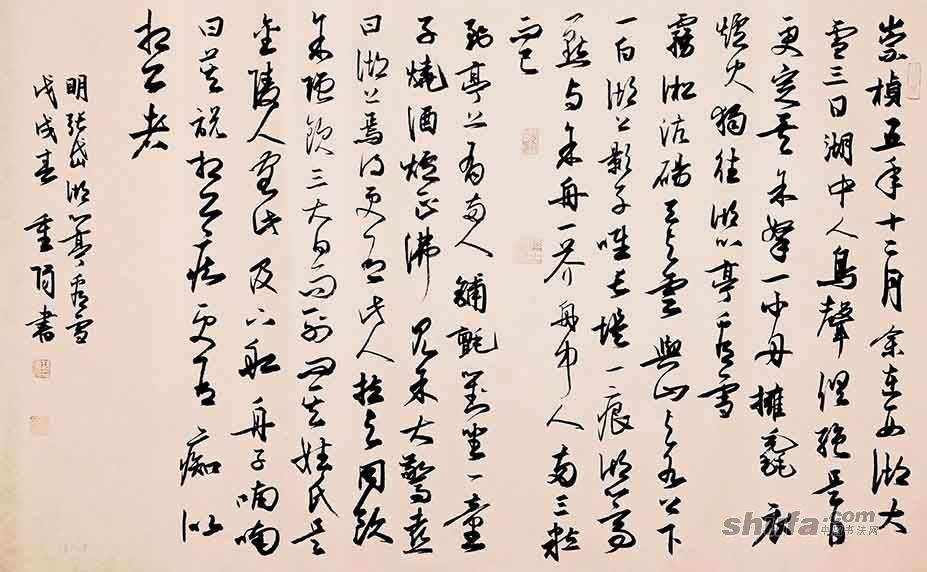 崇禎五年十二月余在西湖大
雪三日湖中人鳥聲俱絕是日
更定矣余拏一小舟擁毳衣
爐火獨往湖心亭看雪
霧淞沆碭天與雲與山與水上下
一白湖上影子唯長堤一痕湖心亭
一點與余舟一芥舟中人兩三粒
而已
到亭上有兩人鋪氈對坐一童
子燒酒爐正沸見余大驚喜
曰湖上焉得更有此人拉余同飲
余強飲三大白而別問其姓氏是
金陵人客此及下船舟子喃喃
曰莫說相公痴更有痴似
相公者
明張岱湖心亭看雪
戊戌春重陽書
shufa.com
中国书法网